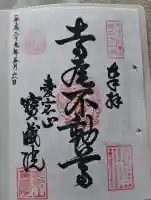 奉拝
寺尾不動尊
愛宕山
寶蔵院
平成二十九年五月六日